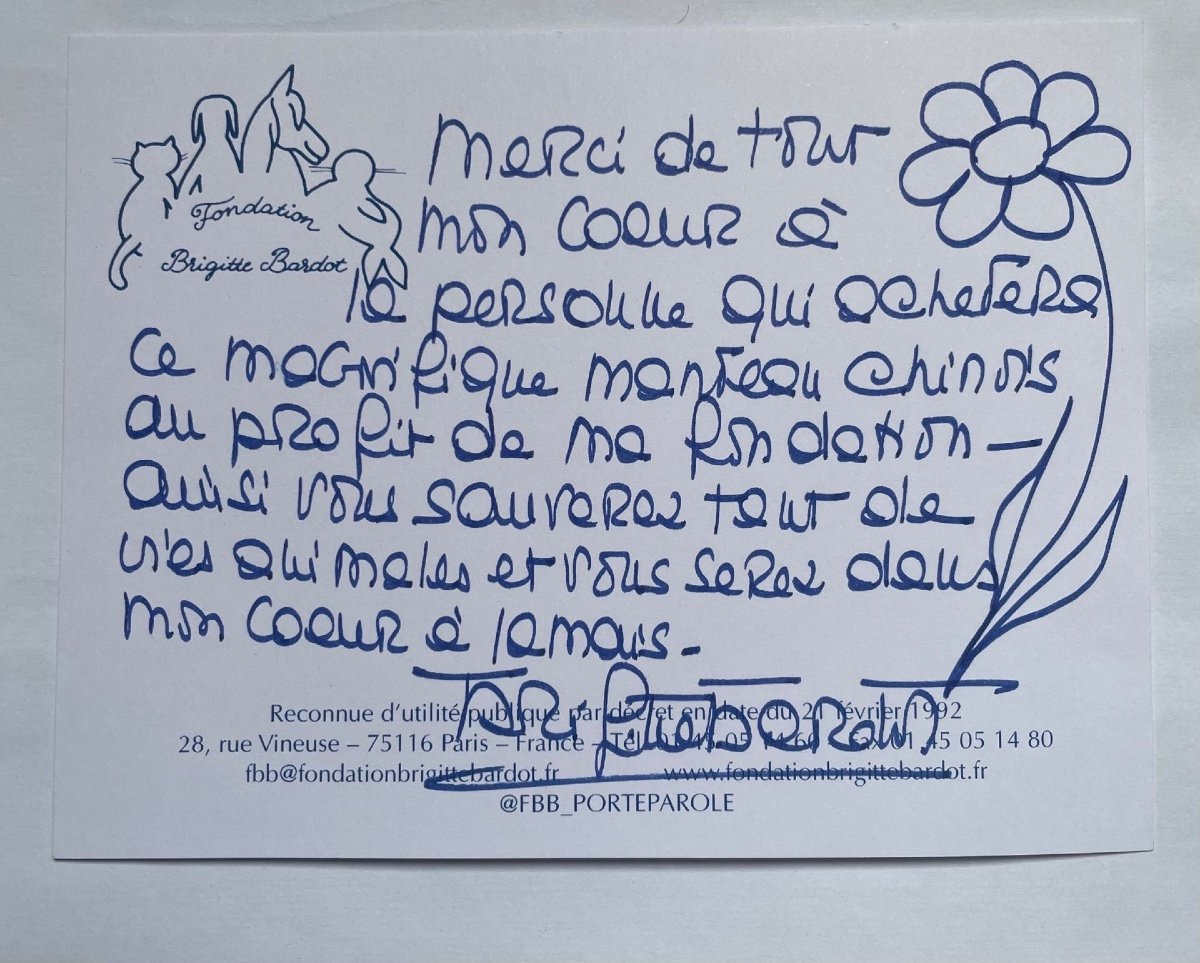 Fondation
Brigitte Bardot
Merci de tout
mon coeur à
la personne qui achetera
ce magnifique manteau chinois
au profit de ma fondation —
ainsi vous sauverez tant de
vies animales et vous serez dans
mon coeur à jamais -
Brigitte Bardot
Reconnue d'utilité publique par décret en date du 21 février 1992
28, rue Vineuse – 75116 Paris – France – Tél. 01 45 05 14 60 – Fax 01 45 05 14 80
fbb@fondationbrigittebardot.fr www.fondationbrigittebardot.fr
@FBB_PORTEPAROLE